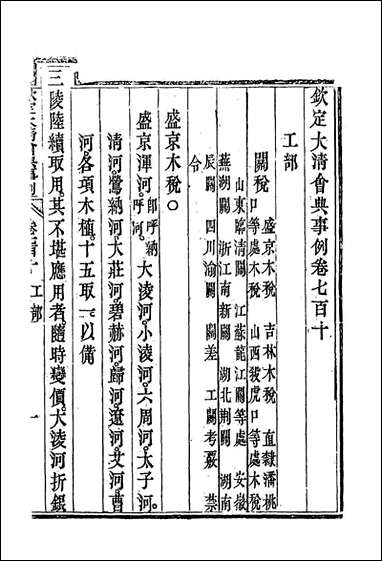 欽定大清會典事例卷七百十
工部
關稅 盛京木稅 吉林木稅 直隸潘桃
口等處木稅 山西殺虎口等處木稅
山東臨清關 江蘇龍江關等處 安徽
蕪湖關 浙江南新關 湖北荊關 湖南
辰關 四川渝關 關差 工關考覈 禁
令
盛京木稅〇
盛京渾河 即呼納呼河 大淩河小淩河六周河太子河
清河鶯納河大莊河碧赫河歸河遼河艾河曹
河各項木植十五取一以備
三陵陸續取用其不堪應用者隨時變價大淩河折銀
工部 一